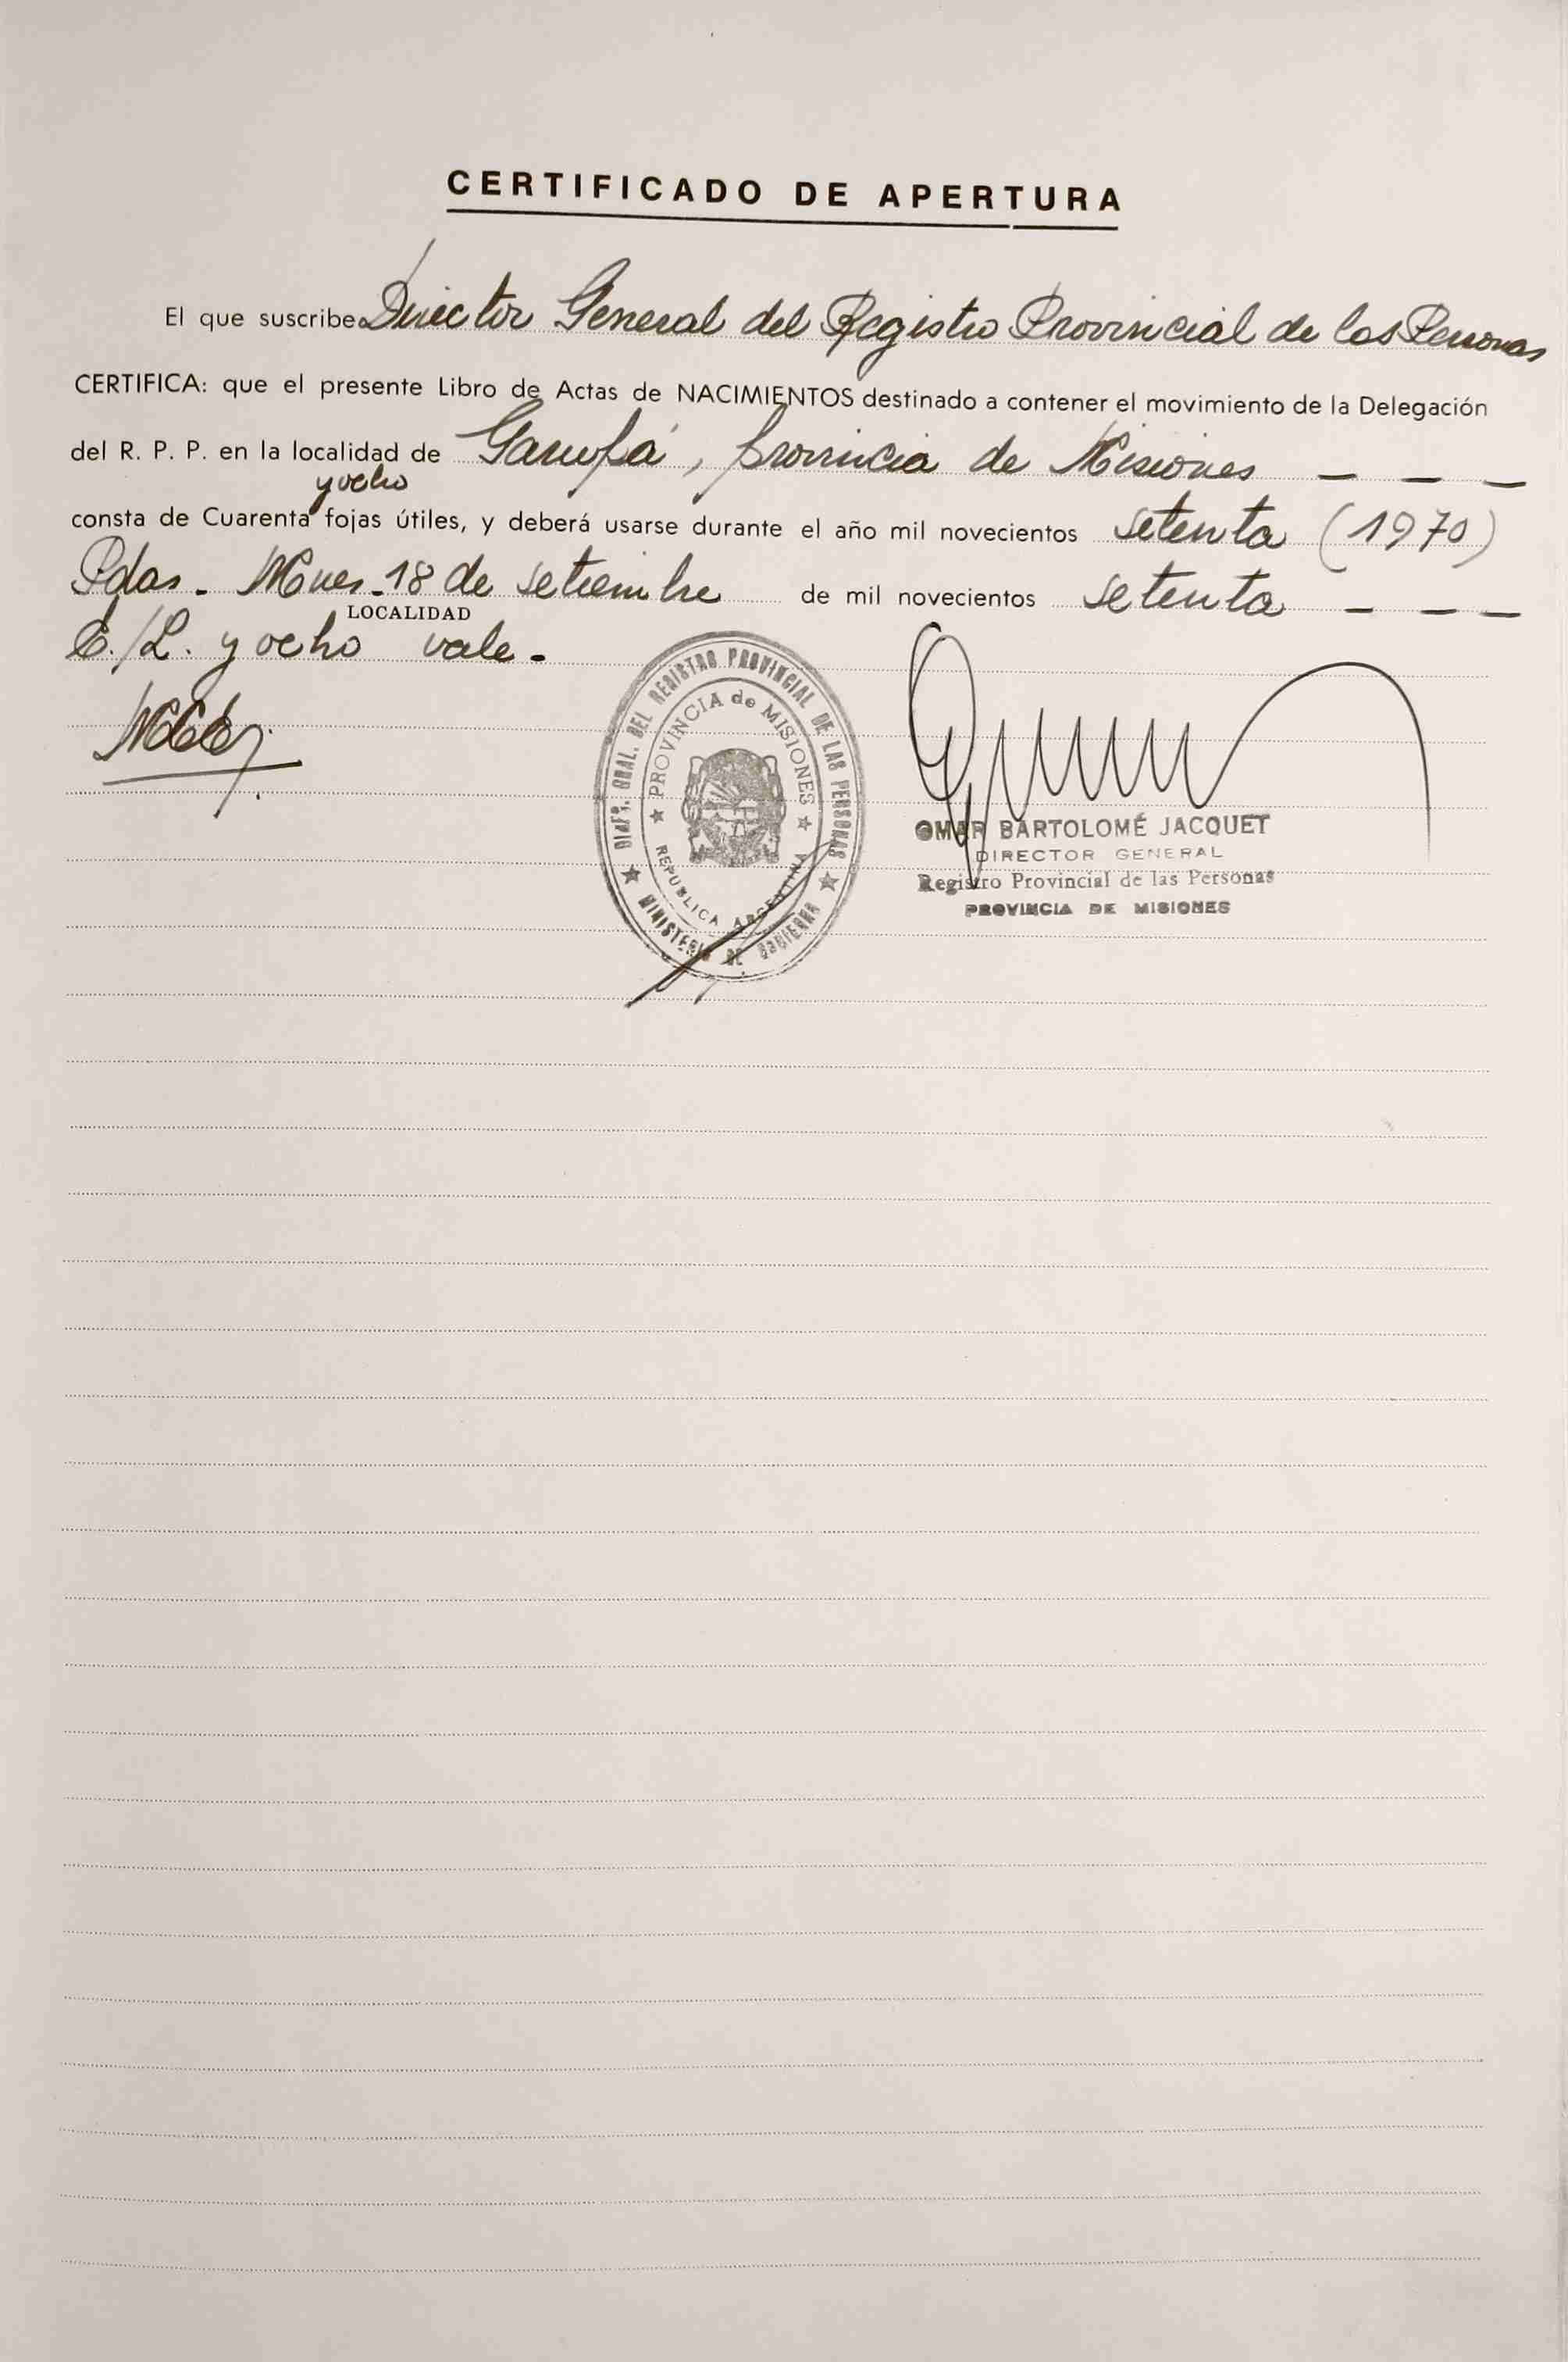 CERTIFICADO DE APERTURA
El que suscribe Director General del Registro Provincial de las Personas
CERTIFICA: que el presente Libro de Actas de NACIMIENTOS destinado a contener el movimiento de la Delegación
del R. P. P. en la localidad de Garupá, provincia de Misiones — — —
y ocho
consta de Cuarenta fojas útiles, y deberá usarse durante el año mil novecientos setenta (1970)
Pdas. Mnes. 18 de setiembre de mil novecientos setenta — — —
LOCALIDAD
E./L. y ocho vale.-
DIREC. GRAL. DEL REGISTRO PROVINCIAL DE LAS PERSONAS
PROVINCIA de MISIONES
REPUBLICA ARGENTINA
MINISTERIO DE GOBIERNO
OMAR BARTOLOMÉ JACQUET
DIRECTOR GENERAL
Registro Provincial de las Personas
PROVINCIA DE MISIONES